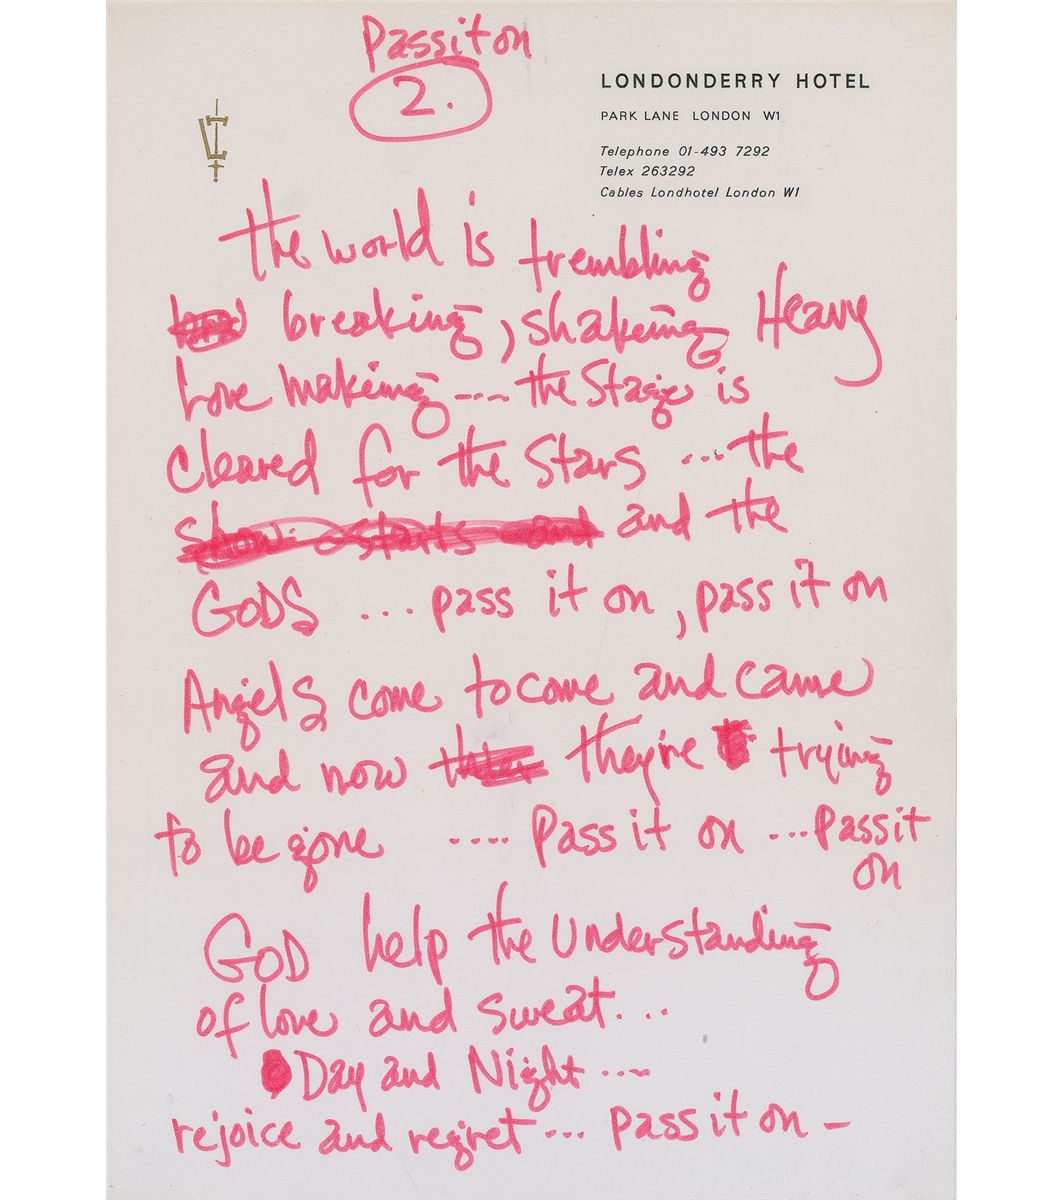 Pass it on
2.
LONDONDERRY HOTEL
PARK LANE LONDON W1
Telephone 01-493 7292
Telex 263292
Cables Londhotel London W1
the world is trembling
breaking, shakeing Heavy
Love making---- the Stage is
cleared for the Stars ... the
show starts and and the
GODS ... pass it on, pass it on
Angels come to come and came
and now they're trying
to be gone .... Pass it on ... Pass it
on
GOD help the Understanding
of love and sweat...
Day and Night ....
rejoice and regret... pass it on -